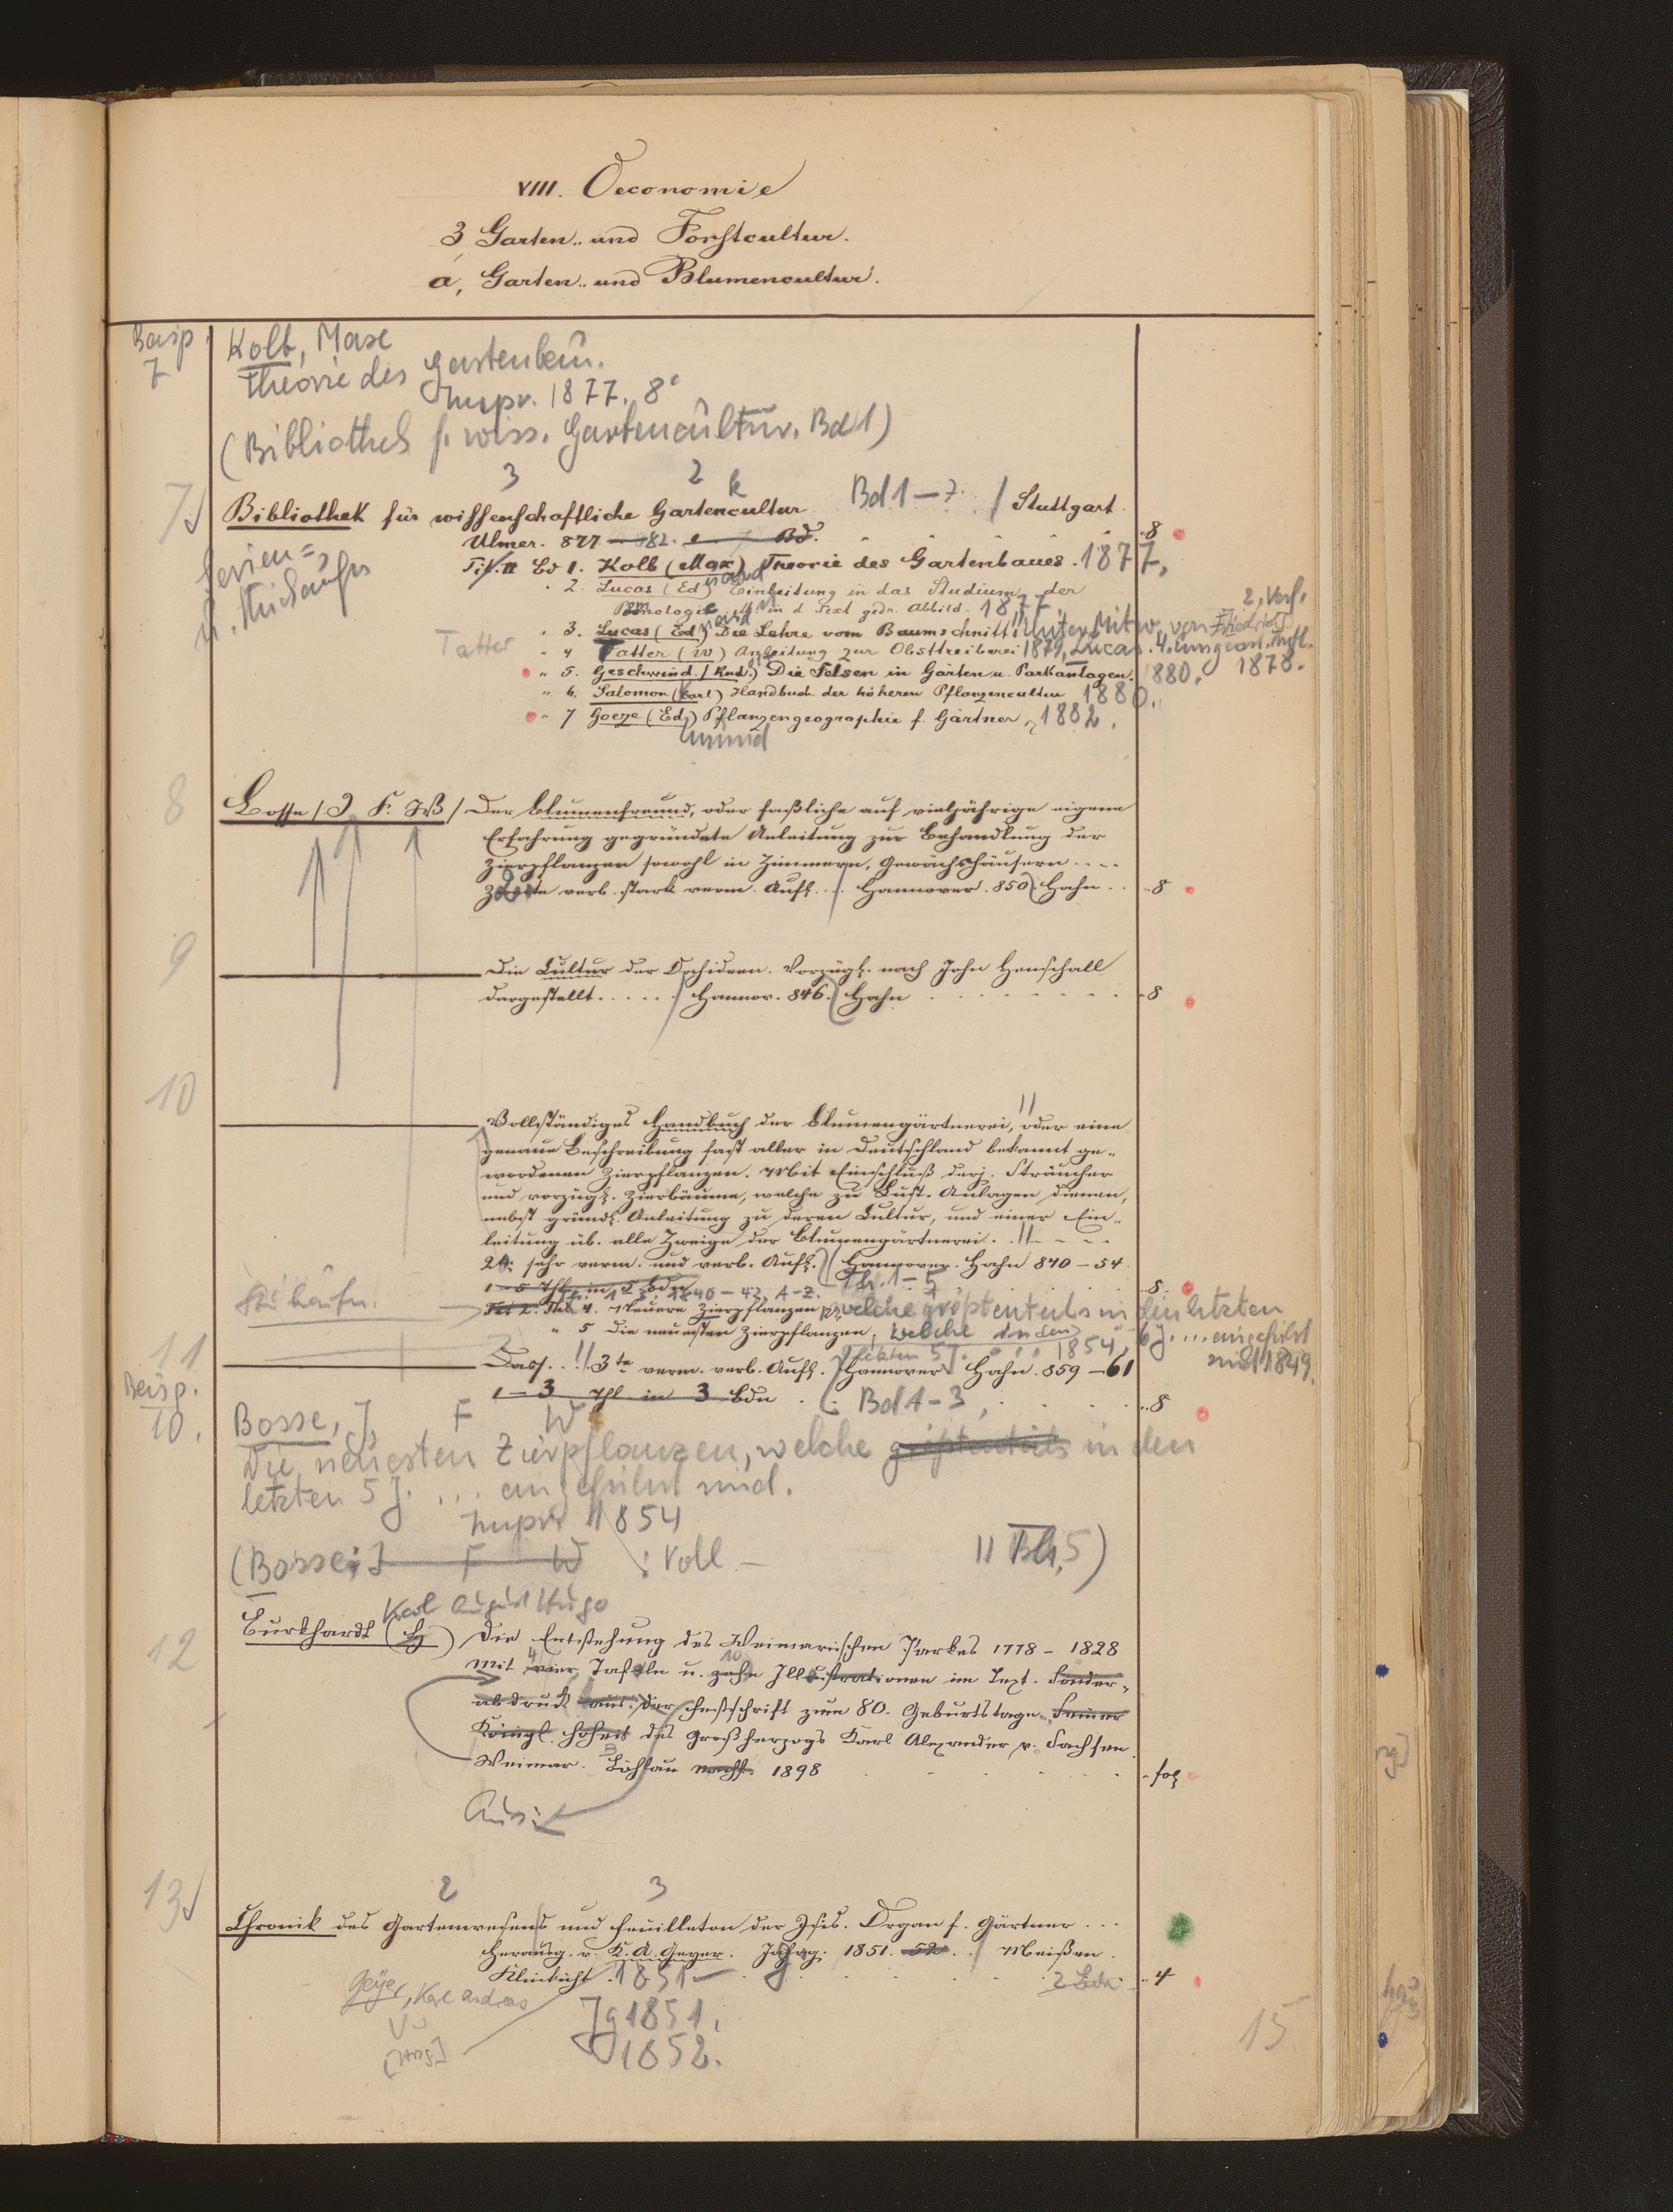 VIII. Oeconomie
3, Garten- und Forstcultur.
a, Garten- und Blumencultur.
Beisp. 7
Kolb, Max
Theorie des Gartenbaus.
1877. 8°
(Bibliothek f. wiss. Gartencultur. Bd 1)
3 2 k
7
Bibliothek für wissenschaftliche Gartencultur Bd 1-7. / Stuttgart.
Ulmer. 877-882. Bd. 8
Serien=
u. Stückaufn
Bd 1. Kolb (Max) Theorie des Gartenbaues. 1877.
" 2. Lucas (Ed)uard Einleitung in das Studium der
Pomologie. M. in d Text gedr. Abbild. 1877.
" 3. Lucas (Ed)uard Die Lehre vom Baumschnitt. Unter Mitw. von Friedrich Lucas. 4. umgearb. Aufl. 1878.
2. Verf.
Tatter
" 4 Tatter (W) Anleitung zur Obsttreiberei 1879.
" 5. Geschwind (Rud.) Die Felsen in Gärten u. Parkanlagen. 1880.
" 6. Salomon (Carl) Handbuch der höheren Pflanzencultur 1880.
" 7 Goeze (Ed) Pflanzengeographie f. Gärtner. 1882.
mund
8
Bosse (J. F. W) Der Blumenfreund, oder faßliche auf vieljährige eigene
Erfahrung gegründete Anleitung zur Behandlung der
Zierpflanzen sowohl in Zimmern, Gewächshäusern ....
Zweite verb. stark verm. Aufl. .. / Hannover. 850. Hahn .. 8
9
Die Cultur der Orchideen. Vorzügl. nach John Henschall
dargestellt. .... / Hannov. 846. Hahn 8
10
Vollständiges Handbuch der Blumengärtnerei, oder eine
genaue Beschreibung fast aller in Deutschland bekannt ge-
wordenen Zierpflanzen. Mit Einschluß derj. Sträucher
und vorzügl. Zierbäume, welche zu Lust-Anlagen dienen,
nebst gründl. Anleitung zu deren Cultur, und einer Ein-
leitung üb. alle Zweige der Blumengärtnerei. ..
2te sehr verm. und verb. Aufl. / Hannover. Hahn 840-54.
1-5 Thl in 5 Bdn Th. 1-5 8
1840-42. A-Z.
Stückaufn.
Thl. 4. Neuere Zierpflanzen, welche größtenteils in den letzten
6 J. ... eingeführt sind 1849.
" 5 Die neuesten Zierpflanzen, welche in den
letzten 5 J. ... 1854.
11
Dass. .. 3te verm. verb. Aufl. / Hannover Hahn 859-61
1-3 Thl in 3 Bdn . Bd 1-3, 8
Beisp. 10.
Bosse, J F W
Die neuesten Zierpflanzen, welche größtenteils in den
letzten 5 J. ... eingeführt sind.
1854
(Bosse: J F W : Voll- Th. 5)
Karl August Hugo
12
Burkhardt (H) Die Entstehung des Weimarischen Parkes 1778-1828
Mit vier 4 Tafeln u. zehn 10 Illustrationen im Text. Sonder-
abdruck aus: der Festschrift zum 80. Geburtstage Seiner
Königl. Hoheit des Großherzogs Karl Alexander v. Sachsen.
Weimar. Böhlau Nachf. 1898 fol
Aus:
2 3
13
Chronik des Gartenwesens und Feuilleton der Isis. Organ f. Gärtner ...
Herausg. v. K. A. Geyer. Jahrg: 1851. 52. / Meißen.
Klinkicht. 1851- 2 Bde 4
Geyer, Karl Andreas
[Hrsg]
Jg 1851.
1852.
15